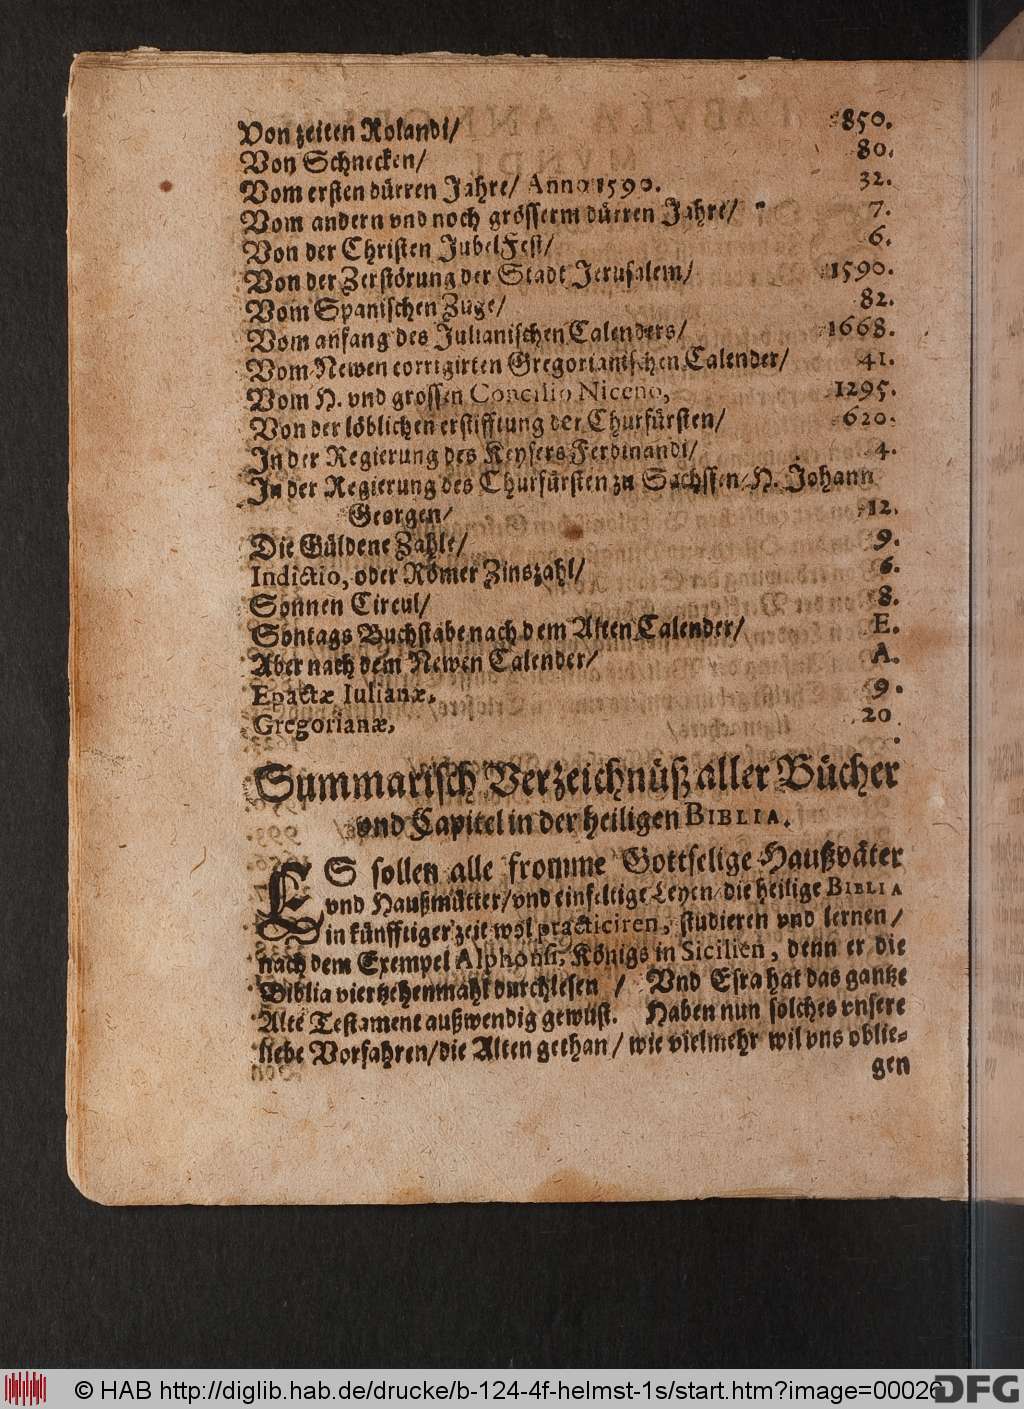 Von zeiten Rolandi/ 850.
Von Schnecken/ 80.
Vom ersten dürren Jahre/ Anno 1590. 32.
Vom andern vnd noch grösserm dürren Jahre/ 7.
Von der Christen JubelFest/ 6.
Von der Zerstörung der Stadt Jerusalem/ 1590.
Vom Spanischen Zuge/ 82.
Vom anfang des Julianischen Calenders/ 1668.
Vom Newen corrigirten Gregorianischen Calender/ 41.
Vom H. vnd grossen Concilio Niceno, 1295.
Von der löblichen erstifftung der Churfürsten/ 620.
In der Regierung des Keysers Ferdinandi/ 4.
In der Regierung des Churfürsten zu Sachssen/ H. Johann
Georgen/ 12.
Die Güldene Zahle/ 9.
Indictio, oder Römer Zinszahl/ 6.
Sonnen Circul/ 8.
Sontags Buchstabe nach dem Alten Calender/ E.
Aber nach dem Newen Calender/ A.
Epactæ Iulianæ, 9.
Gregorianæ, 20.
Summarisch Verzeichnüß aller Bücher
vnd Capitel in der heiligen BIBLIA.
ES sollen alle fromme Gottselige Haußväter
vnd Haußmütter/ vnd einfeltige Leyen/ die heilige BIBLIA
in künfftiger zeit wol practiciren, studieren vnd lernen/
nach dem Exempel Alphonsi, Königs in Sicilien, denn er die
Biblia viertzehenmahl durchlesen / Vnd Esra hat das gantze
Alte Testament außwendig gewust. Haben nun solches vnsere
liebe Vorfahren/ die Alten gethan/ wie vielmehr wil vns oblie-
gen
© HAB http://diglib.hab.de/drucke/b-124-4f-helmst-1s/start.htm?image=00026
DFG